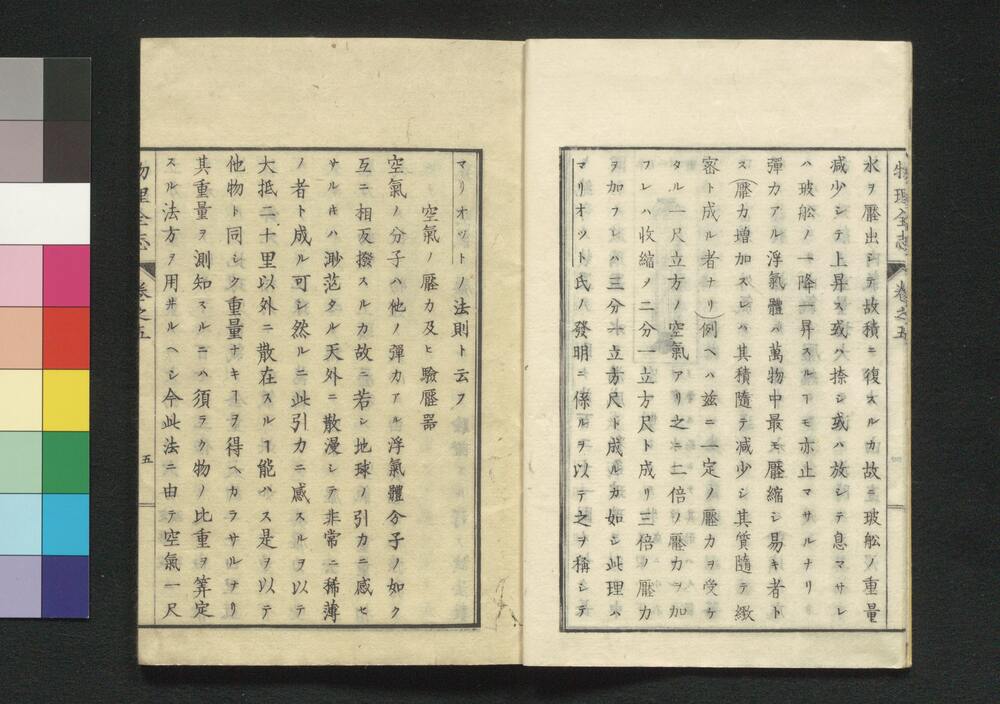 物理全志 卷之五
水ヲ壓出シテ故積ニ復スルカ故ニ玻舩ノ重量
减少シテ上昇ス或ハ捺シ或ハ放シテ息マサレ
ハ玻舩ノ一降一昇スルヿモ亦止マサルナリ
彈力アル浮氣體ハ萬物中最モ壓縮シ易キ者ト
ス(壓力増加スレハ其積隨テ减少シ其質隨テ緻
密ト成ル者ナリ)例ヘハ玆ニ一定ノ壓力ヲ受ケ
タル一尺立方ノ空氣アリ之ニ二倍ノ壓力ヲ加
フレハ收縮ノ二分一立方尺ト成リ三倍ノ壓力
ヲ加フレハ三分一立方尺ト成ルカ如シ此理ハ
マリオット氏ノ發明ニ係ルヲ以テ之ヲ稱シテ
マリオットノ法則ト云フ
空氣ノ壓力及ヒ驗壓器
空氣ノ分子ハ他ノ彈力アル浮氣體分子ノ如ク
互ニ相反撥スルカ故ニ若シ地球ノ引力ニ感セ
サルキハ渺茫タル天外ニ散漫シテ非常ニ稀薄
ノ者ト成ル可シ然ルニ此引力ニ感スルヲ以テ
大抵二十里以外ニ散在スルヿ能ハス是ヲ以テ
他物ト同シク重量ナキヿヲ得ヘカラサルナリ
其重量ヲ測知スルニハ須ラク物ノ比重ヲ筭定
スル法方ヲ用井ルヘシ今此法ニ由テ空氣一尺
物理全志 卷之五 五